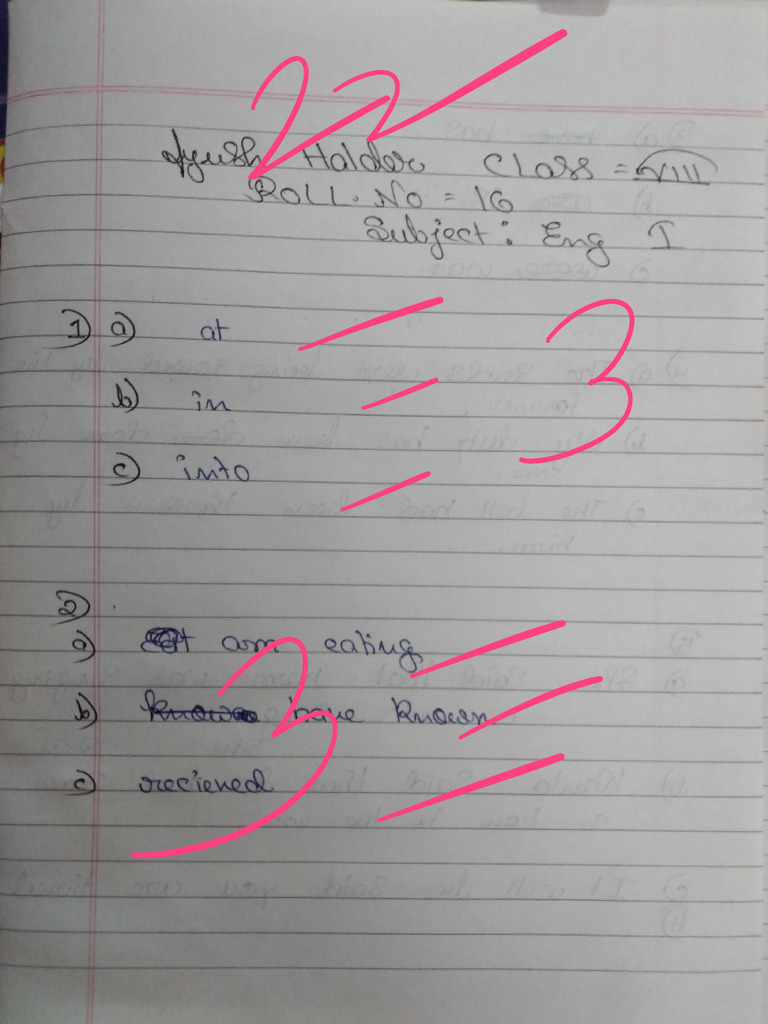 22
Ayush Halder Class = VIII
ROLL. No = 16
Subject: Eng I
1) a) at
3
b) in
c) into
2)
a) am eating
b) have known
c) recieved
3